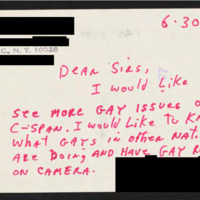 6-30
C., N.Y. 10028
DEAR SIRS,
I WOULD LIKE
SEE MORE GAY ISSUES O
C-SPAN. I WOULD LIKE TO K
WHAT GAYS IN OTHER NAT
ARE DOING AND HAVE GAY R
ON CAMERA.